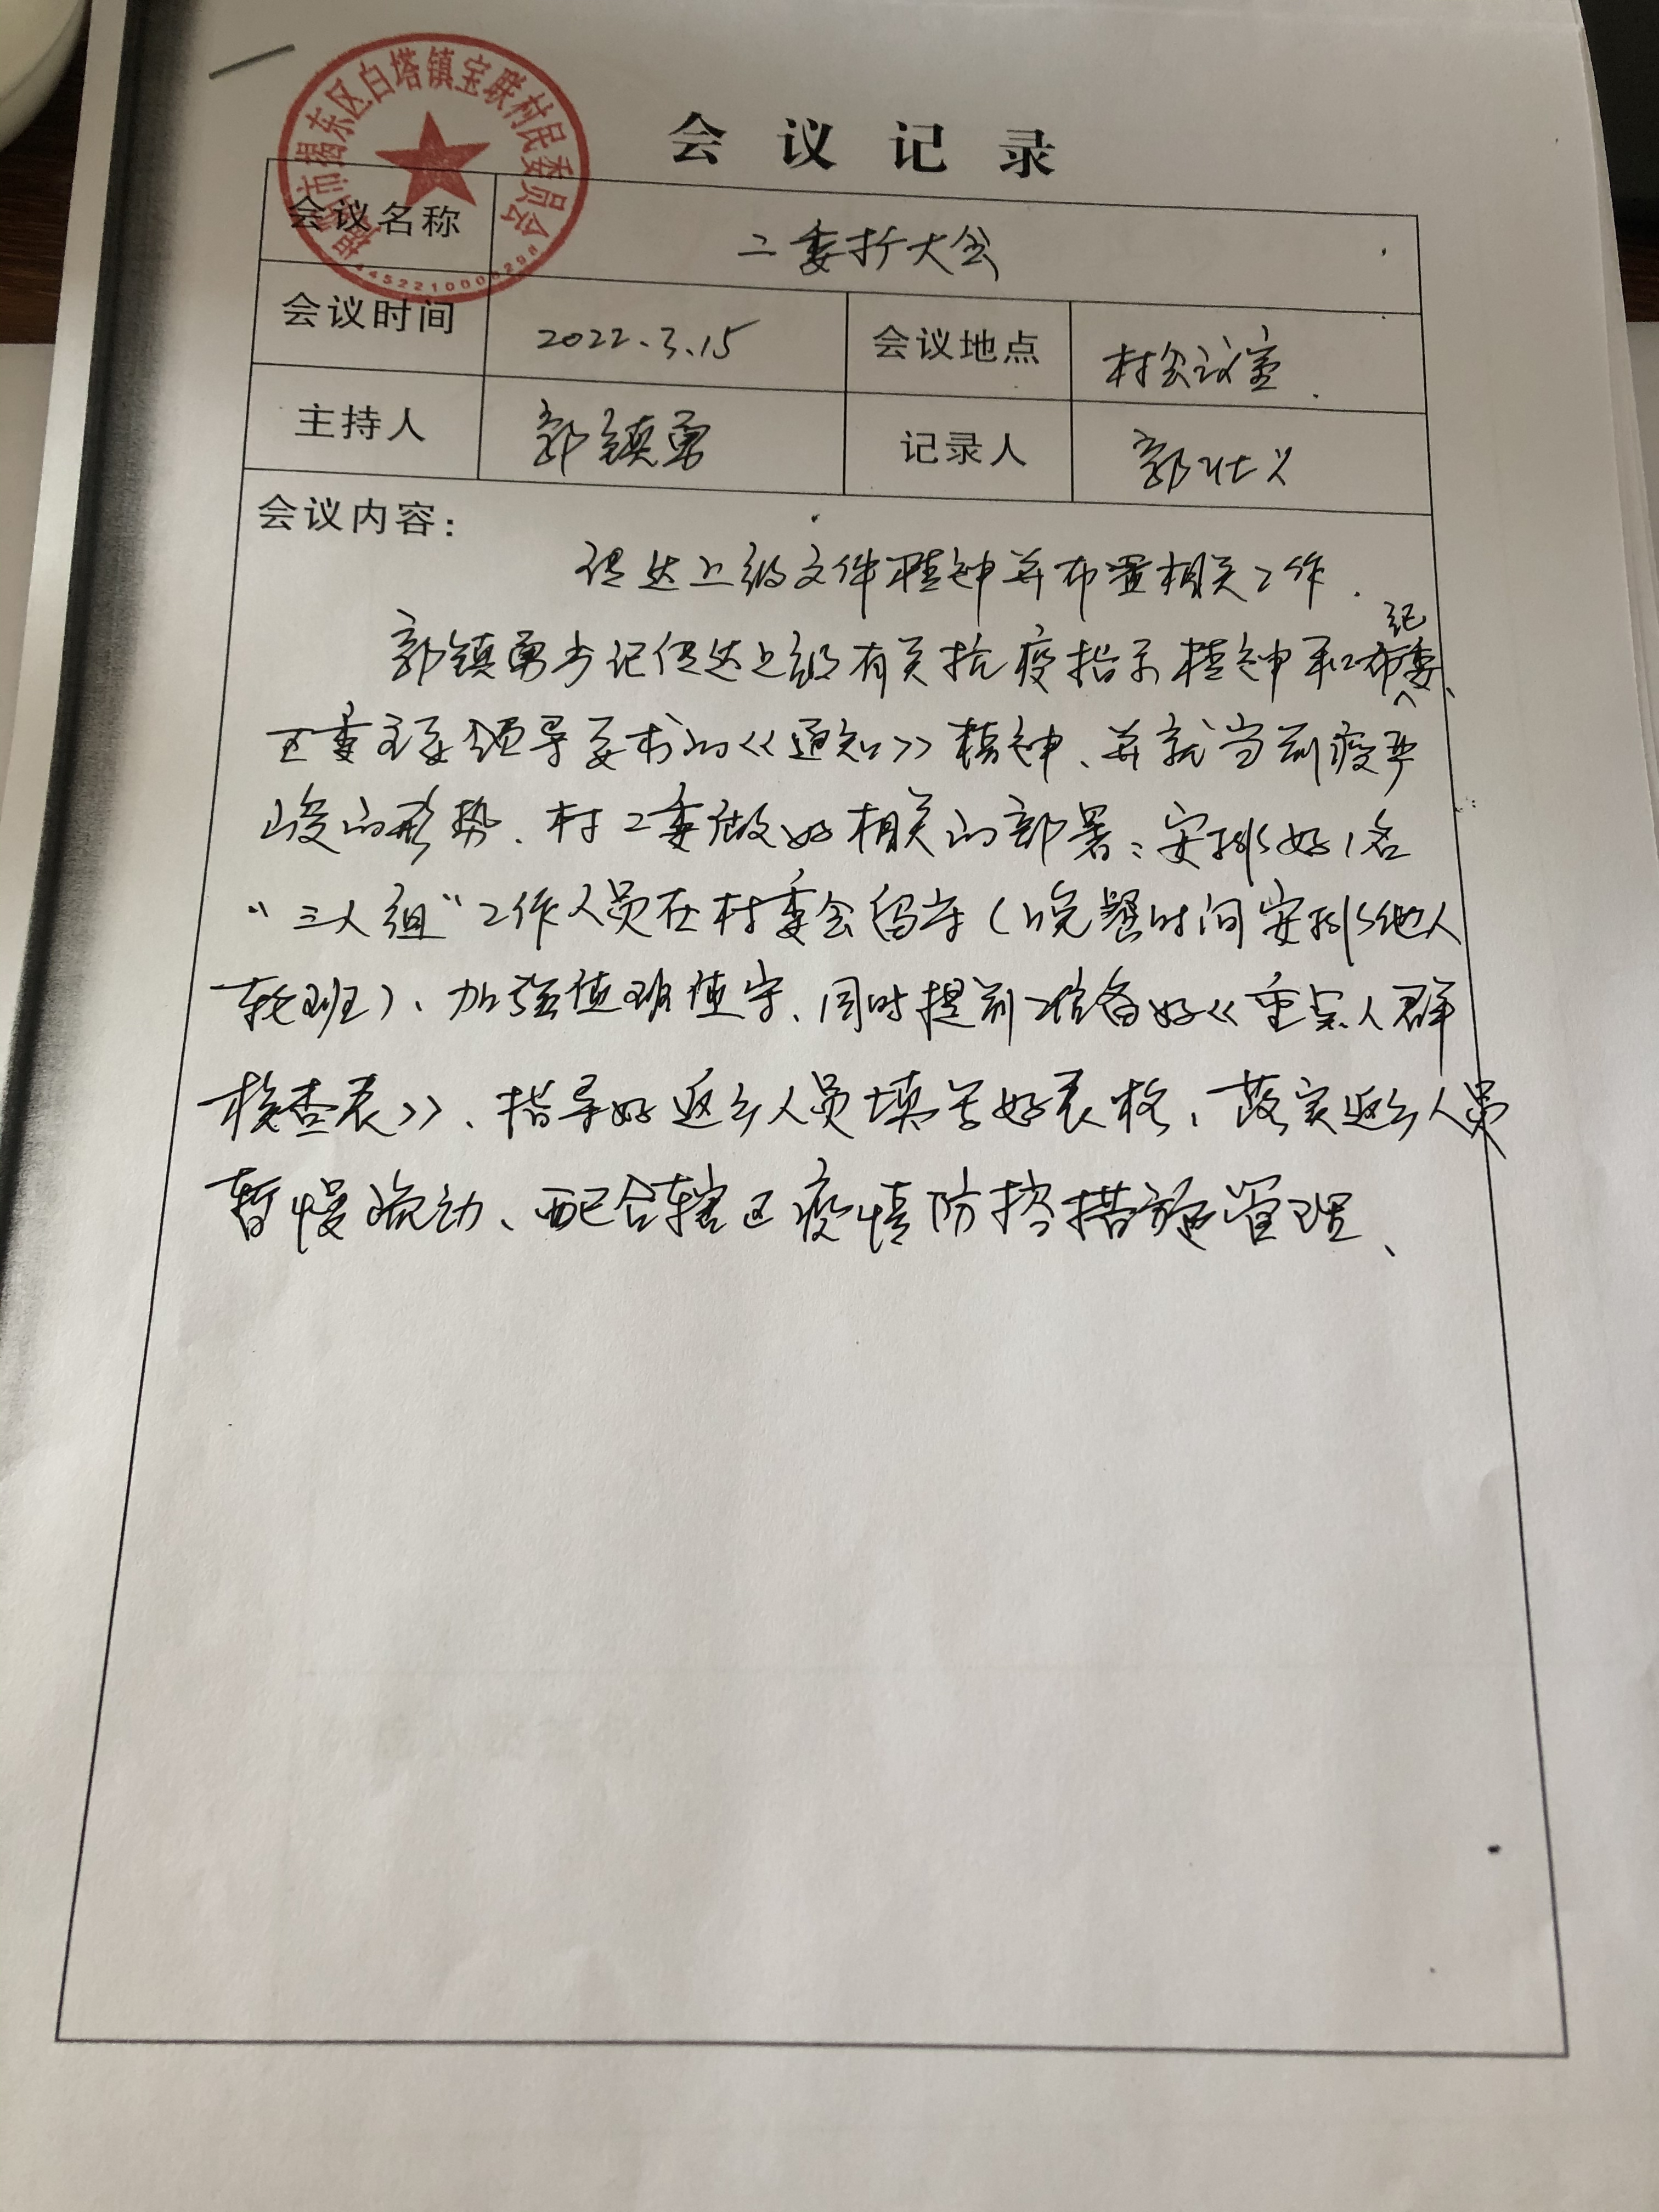 揭阳市揭东区白塔镇宝联村民委员会
4452210006298
会议记录
会议名称 二委扩大会
会议时间 2022.3.15 会议地点 村会议室.
主持人 郭镇勇 记录人 郭壮义
会议内容:
传达上级文件精神并布置相关工作.
郭镇勇书记传达上级有关抗疫指示精神和市纪委、
区委主要领导要求的《通知》精神、并就当前疫严
峻的形势、村二委做好相关的部署:安排好1名
“三人组”工作人员在村委会留守(晚餐时间安排他人
轮班)、加强值班值守、同时提前准备好《重点人群
核查表》、指导好返乡人员填写好表格、落实返乡人员
暂慢流动、配合辖区疫情防控措施管理、